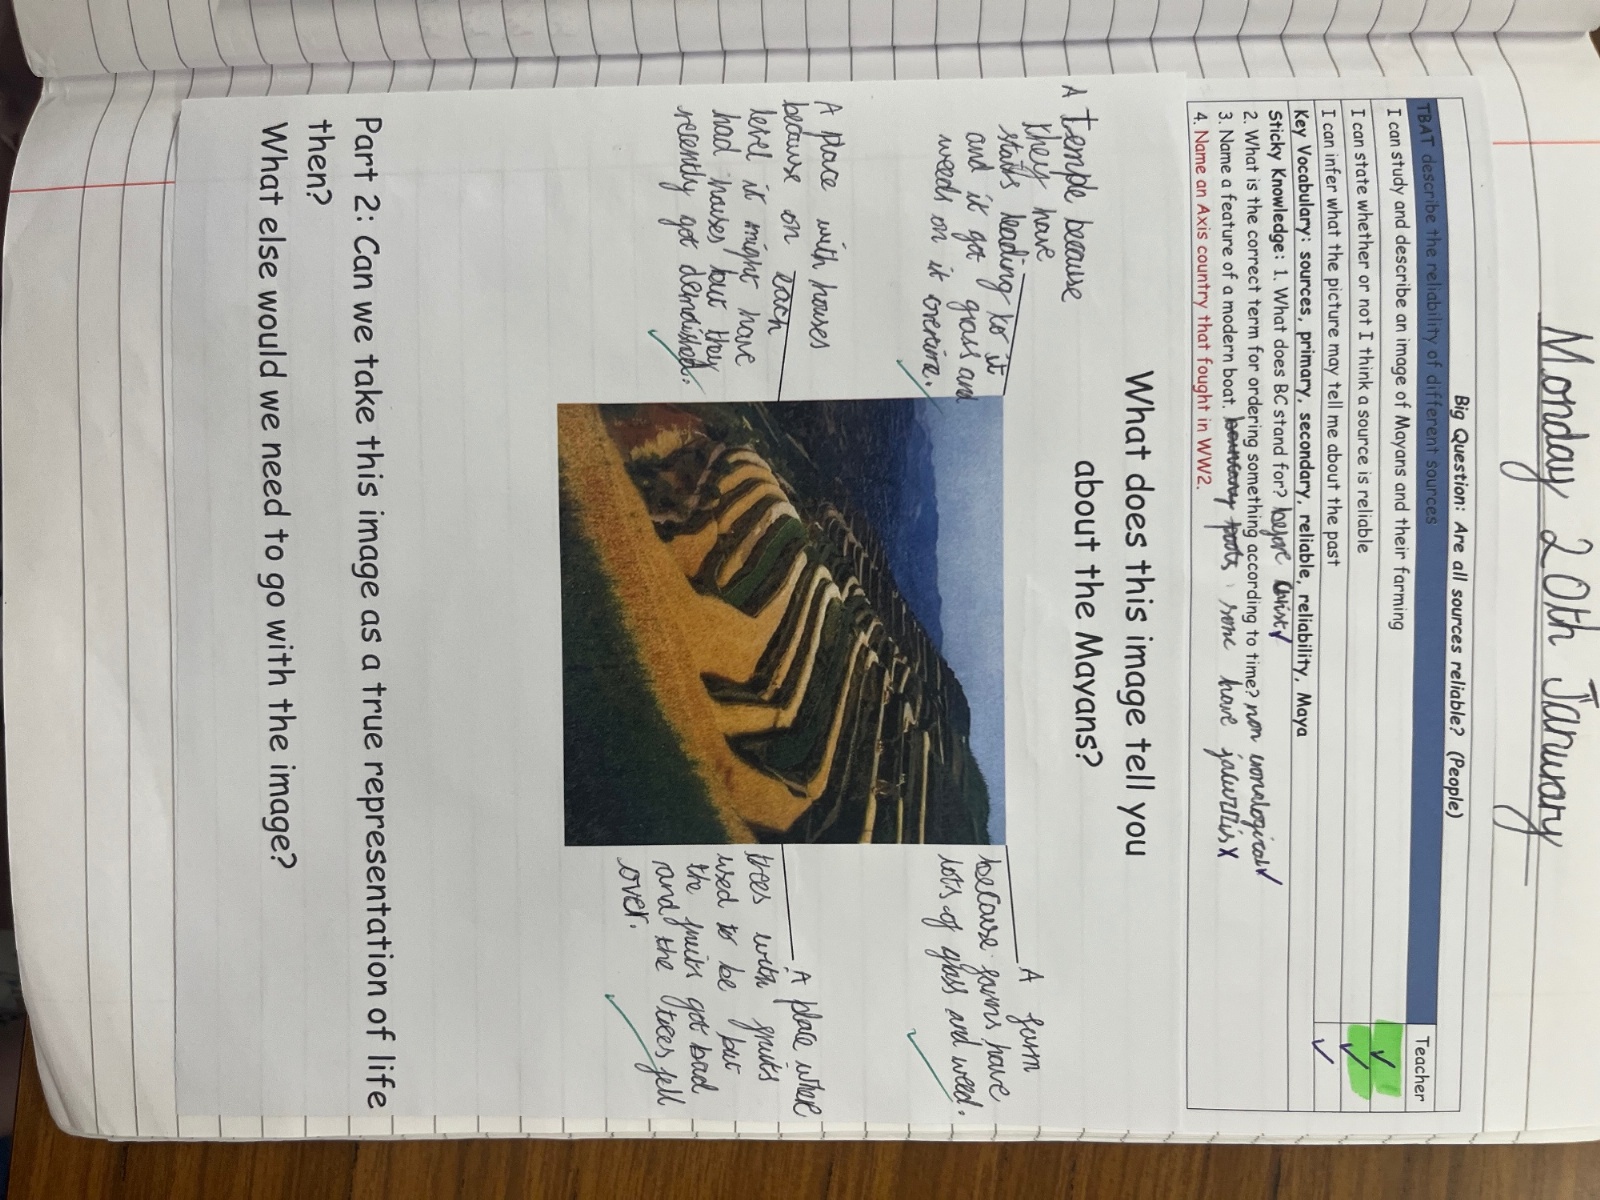 Monday 20th January
Big Question: Are all sources reliable? (People)
TBAT describe the reliability of different sources
Teacher
I can study and describe an image of Mayans and their farming
I can state whether or not I think a source is reliable
I can infer what the picture may tell me about the past
Key Vocabulary: sources, primary, secondary, reliable, reliability, Maya
Sticky Knowledge: 1. What does BC stand for? before christ
2. What is the correct term for ordering something according to time?
3. Name a feature of a modern boat. some have
4. Name an Axis country that fought in WW2.
What does this image tell you
about the Mayans?
A temple because
they have
stairs leading to it
and it got grass and
weeds on it overtime.
A farm
because farms have
lots of glass and weed.
A place with houses
because on each
level it might have
had houses but they
recently got demolished.
A place where
trees with fruits
used to be but
the fruits got bad
and the trees fell
over.
Part 2: Can we take this image as a true representation of life
then?
What else would we need to go with the image?